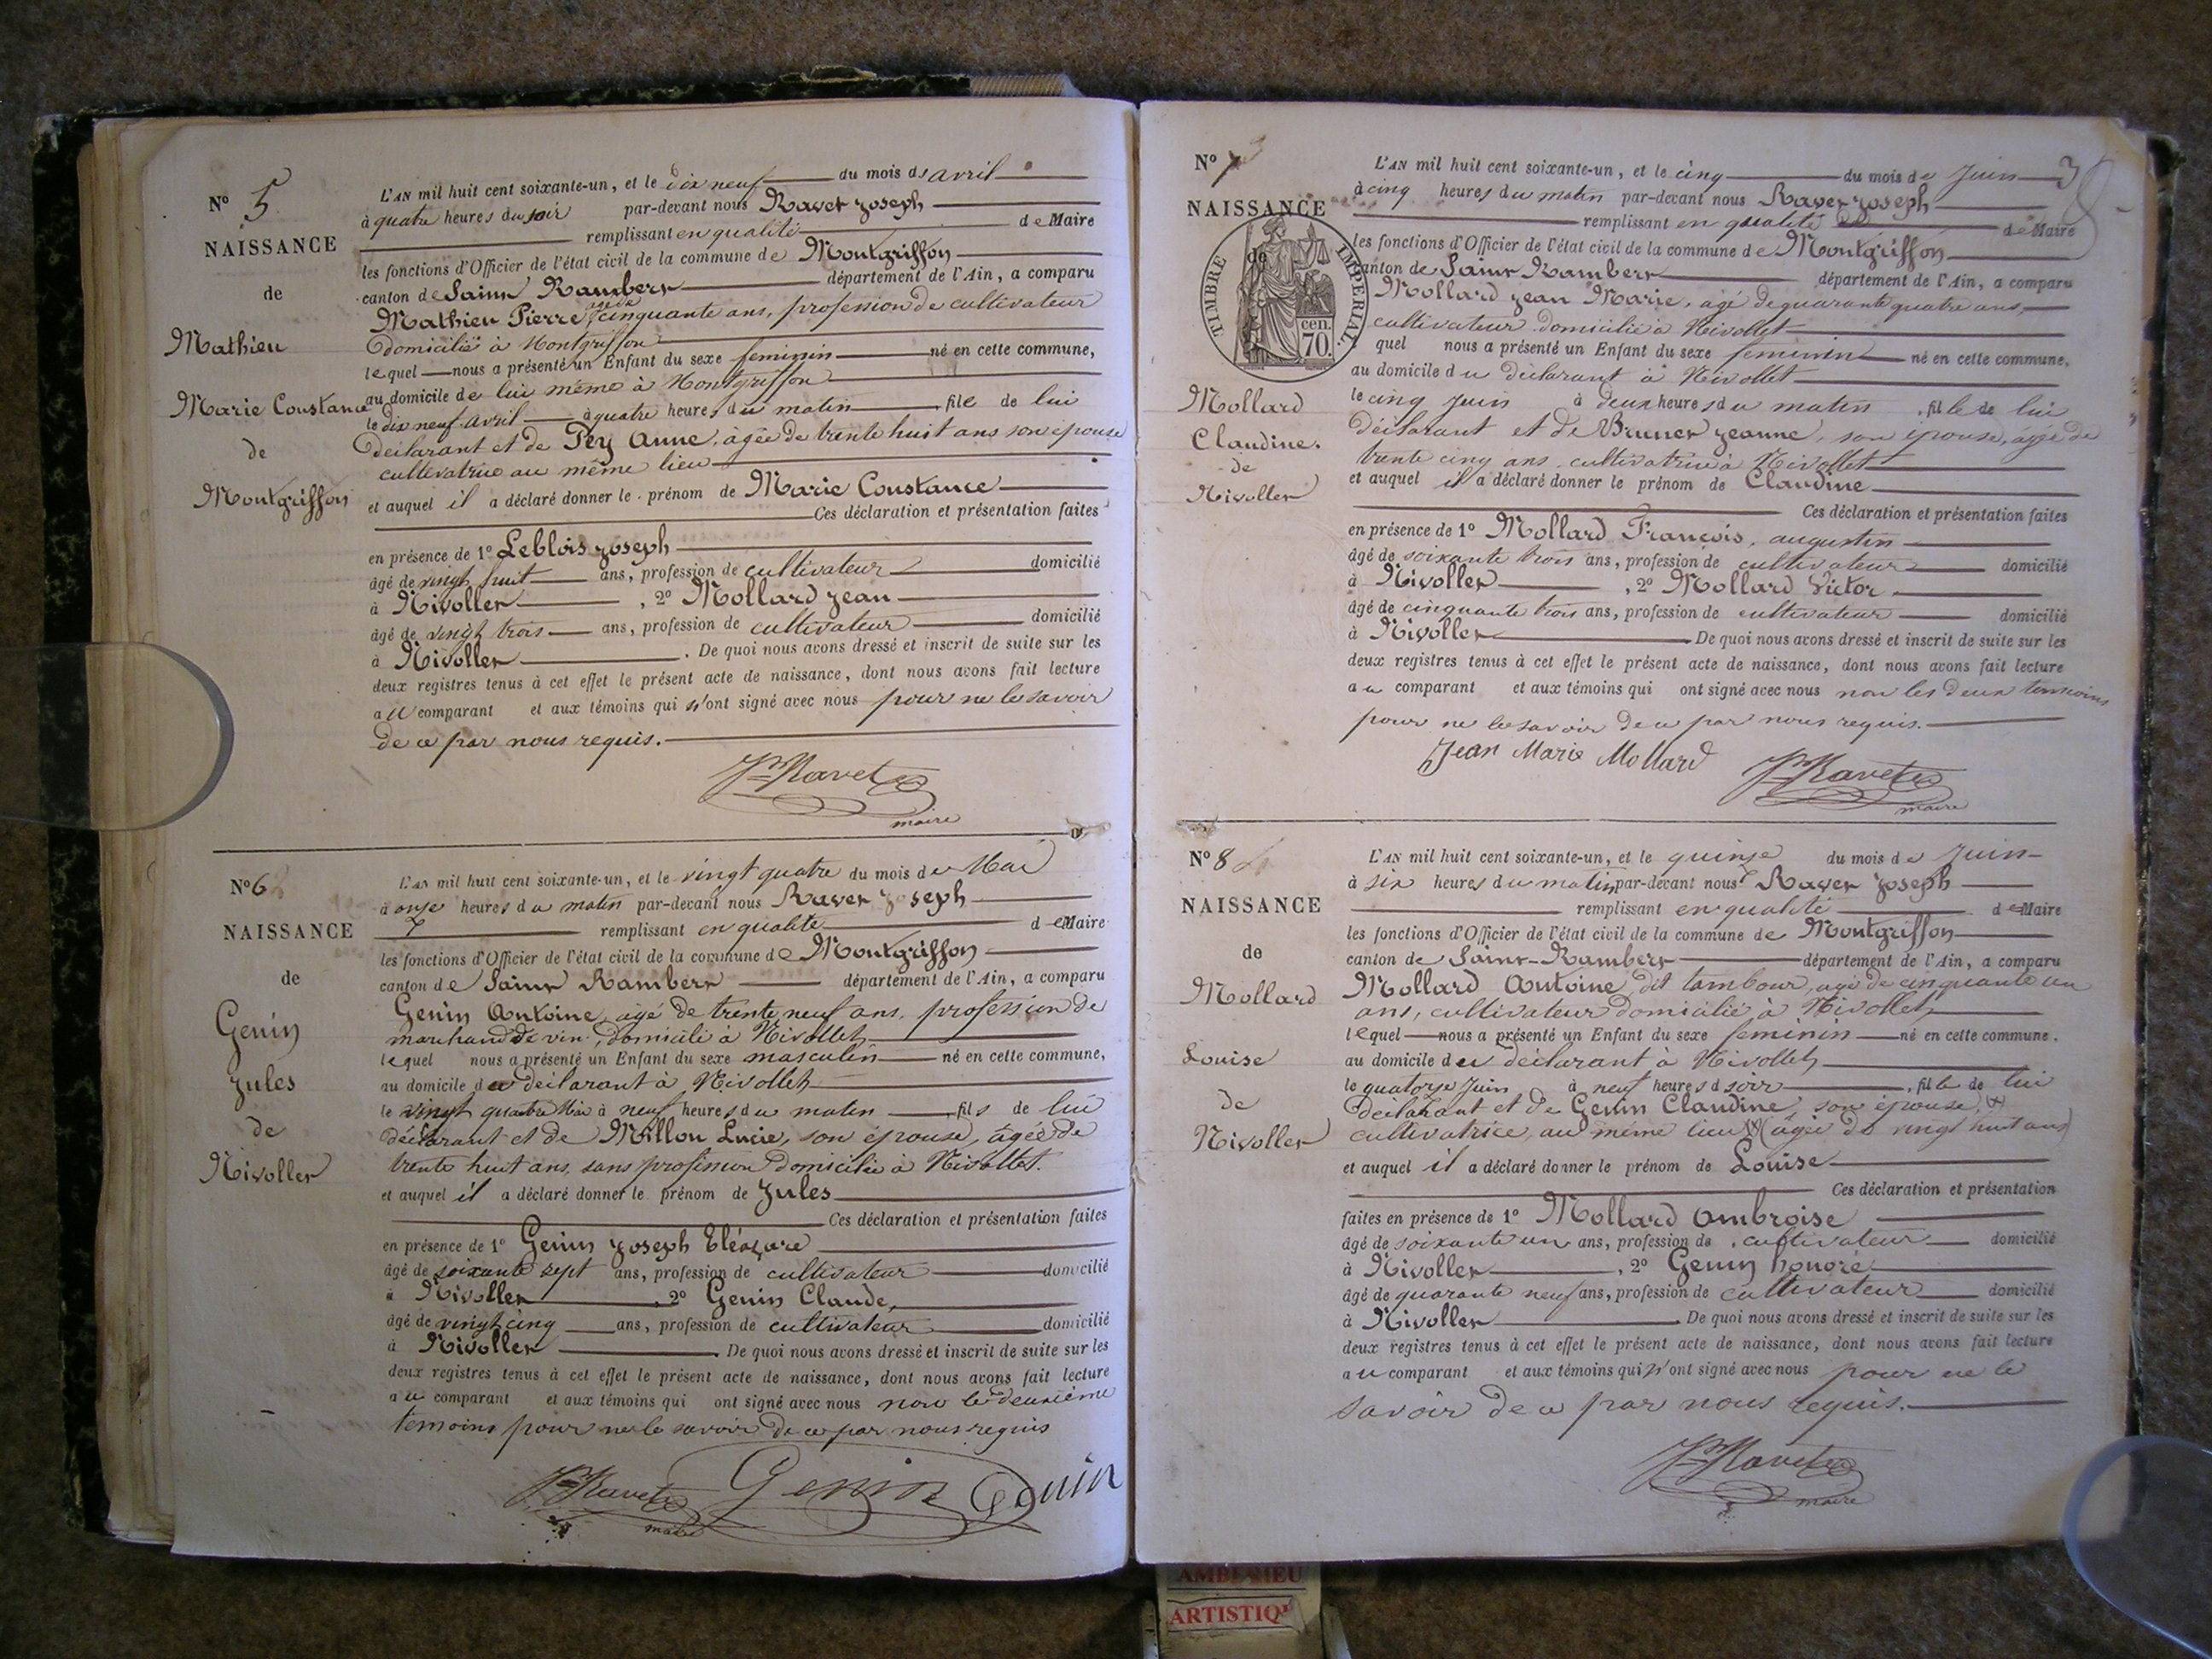 N° 5
NAISSANCE
de
Mathieu
Marie Constance
de
Montgriffon
L'AN mil huit cent soixante-un, et le dix neuf du mois d'avril
à quatre heures du soir par-devant nous Ravet Joseph
remplissant en qualité de Maire
les fonctions d'Officier de l'état civil de la commune de Montgriffon
canton de Saint Rambert département de l'Ain, a comparu
Mathieu Pierre, agé de cinquante ans, profession de cultivateur
domicilié à Montgriffon
lequel nous a présenté un Enfant du sexe feminin né en cette commune,
au domicile de lui même à Montgriffon
le dix neuf avril à quatre heures du matin fille de lui
déclarant et de Pey Anne, âgée de trente huit ans son épouse
cultivatrice au même lieu
et auquel il a déclaré donner le prénom de Marie Constance
Ces déclaration et présentation faites
en présence de 1° Leblois Joseph
âgé de vingt huit ans, profession de cultivateur domicilié
à Nivollet, 2° Mollard Jean
âgé de vingt trois ans, profession de cultivateur domicilié
à Nivollet. De quoi nous avons dressé et inscrit de suite sur les
deux registres tenus à cet effet le présent acte de naissance, dont nous avons fait lecture
au comparant et aux témoins qui n'ont signé avec nous pour ne le savoir
de ce par nous requis.
Jh Ravet
maire
N° 6
NAISSANCE
de
Genin
Jules
de
Nivollet
L'AN mil huit cent soixante-un, et le vingt quatre du mois de Mai
à onze heures du matin par-devant nous Ravet Joseph
remplissant en qualité de Maire
les fonctions d'Officier de l'état civil de la commune de Montgriffon
canton de Saint Rambert département de l'Ain, a comparu
Genin Antoine, âgé de trente neuf ans, profession de
marchand de vin, domicilié à Nivollet
lequel nous a présenté un Enfant du sexe masculin né en cette commune,
au domicile du déclarant à Nivollet
le vingt quatre Mai à neuf heures du matin fils de lui
déclarant et de Millon Lucie, son épouse, âgée de
trente huit ans, sans profession domicilié à Nivollet.
et auquel il a déclaré donner le prénom de Jules
Ces déclaration et présentation faites
en présence de 1° Genin Joseph Eléazare
âgé de soixante sept ans, profession de cultivateur domicilié
à Nivollet, 2° Genin Claude,
âgé de vingt cinq ans, profession de cultivateur domicilié
à Nivollet. De quoi nous avons dressé et inscrit de suite sur les
deux registres tenus à cet effet le présent acte de naissance, dont nous avons fait lecture
au comparant et aux témoins qui ont signé avec nous non le deuxième
temoins pour ne le savoir de ce par nous requis
Jh Ravet Genin Genin
maire
N° 7
3
NAISSANCE
de
TIMBRE IMPERIAL
70 cen.
Mollard
Claudine.
de
Nivollet
L'AN mil huit cent soixante-un, et le cinq du mois de Juin
à cinq heures du matin par-devant nous Ravet Joseph
remplissant en qualité de Maire
les fonctions d'Officier de l'état civil de la commune de Montgriffon
canton de Saint Rambert département de l'Ain, a comparu
Mollard Jean Marie, agé de quarante quatre ans,
cultivateur domicilié à Nivollet
quel nous a présenté un Enfant du sexe feminin né en cette commune,
au domicile du déclarant à Nivollet
le cinq Juin à deux heures du matin, fille de lui
déclarant et de Brunet Jeanne, son épouse, âgée de
trente cinq ans, cultivatrice à Nivollet
et auquel il a déclaré donner le prénom de Claudine
Ces déclaration et présentation faites
en présence de 1° Mollard François, augustin
âgé de soixante trois ans, profession de cultivateur domicilié
à Nivollet, 2° Mollard Victor.
âgé de cinquante trois ans, profession de cultivateur domicilié
à Nivollet. De quoi nous avons dressé et inscrit de suite sur les
deux registres tenus à cet effet le présent acte de naissance, dont nous avons fait lecture
au comparant et aux témoins qui ont signé avec nous non les deux temoins
pour ne le savoir de ce par nous requis.
Jean Marie Mollard Jh Ravet
maire
N° 8
NAISSANCE
de
Mollard
Louise
de
Nivollet
L'AN mil huit cent soixante-un, et le quinze du mois de Juin
à six heures du matin par-devant nous Ravet Joseph
remplissant en qualité de Maire
les fonctions d'Officier de l'état civil de la commune de Montgriffon
canton de Saint-Rambert département de l'Ain, a comparu
Mollard Antoine, dit tambour, agé de cinquante un
ans, cultivateur domicilié, à Nivollet
lequel nous a présenté un Enfant du sexe feminin né en cette commune.
au domicile du déclarant à Nivollet
le quatorze Juin à neuf heures d soir, fille de lui
déclarant et de Genin Claudine, son épouse, (x)
cultivatrice, au même lieu (x) (agée de vingt huit ans)
et auquel il a déclaré donner le prénom de Louise
Ces déclaration et présentation
faites en présence de 1° Mollard Ambroise
âgé de soixante un ans, profession de cultivateur domicilié
à Nivollet, 2° Genin honoré
âgé de quarante neuf ans, profession de cultivateur domicilié
à Nivollet. De quoi nous avons dressé et inscrit de suite sur les
deux registres tenus à cet effet le présent acte de naissance, dont nous avons fait lecture
au comparant et aux témoins qui n'ont signé avec nous pour ne le
savoir de ce par nous requis.
Jh Ravet
maire
ARTISTIQ